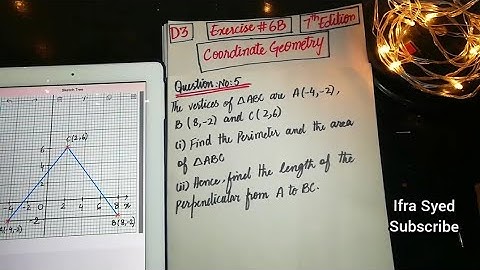 D3
Exercise #6B
7th Edition
Coordinate Geometry
Question:No:5
The vertices of △ABC are A(-4,-2),
B(8,-2) and C(2,6)
(i) Find the Perimeter and the area
of △ABC
(ii) Hence, find the length of the
Perpendicular from A to BC.
Sketch Tree
C(2,6)
6
4
2
-4 -2 0 2 4 6 8 x
-2
B(8,-2)
Ifra Syed
Subscribe